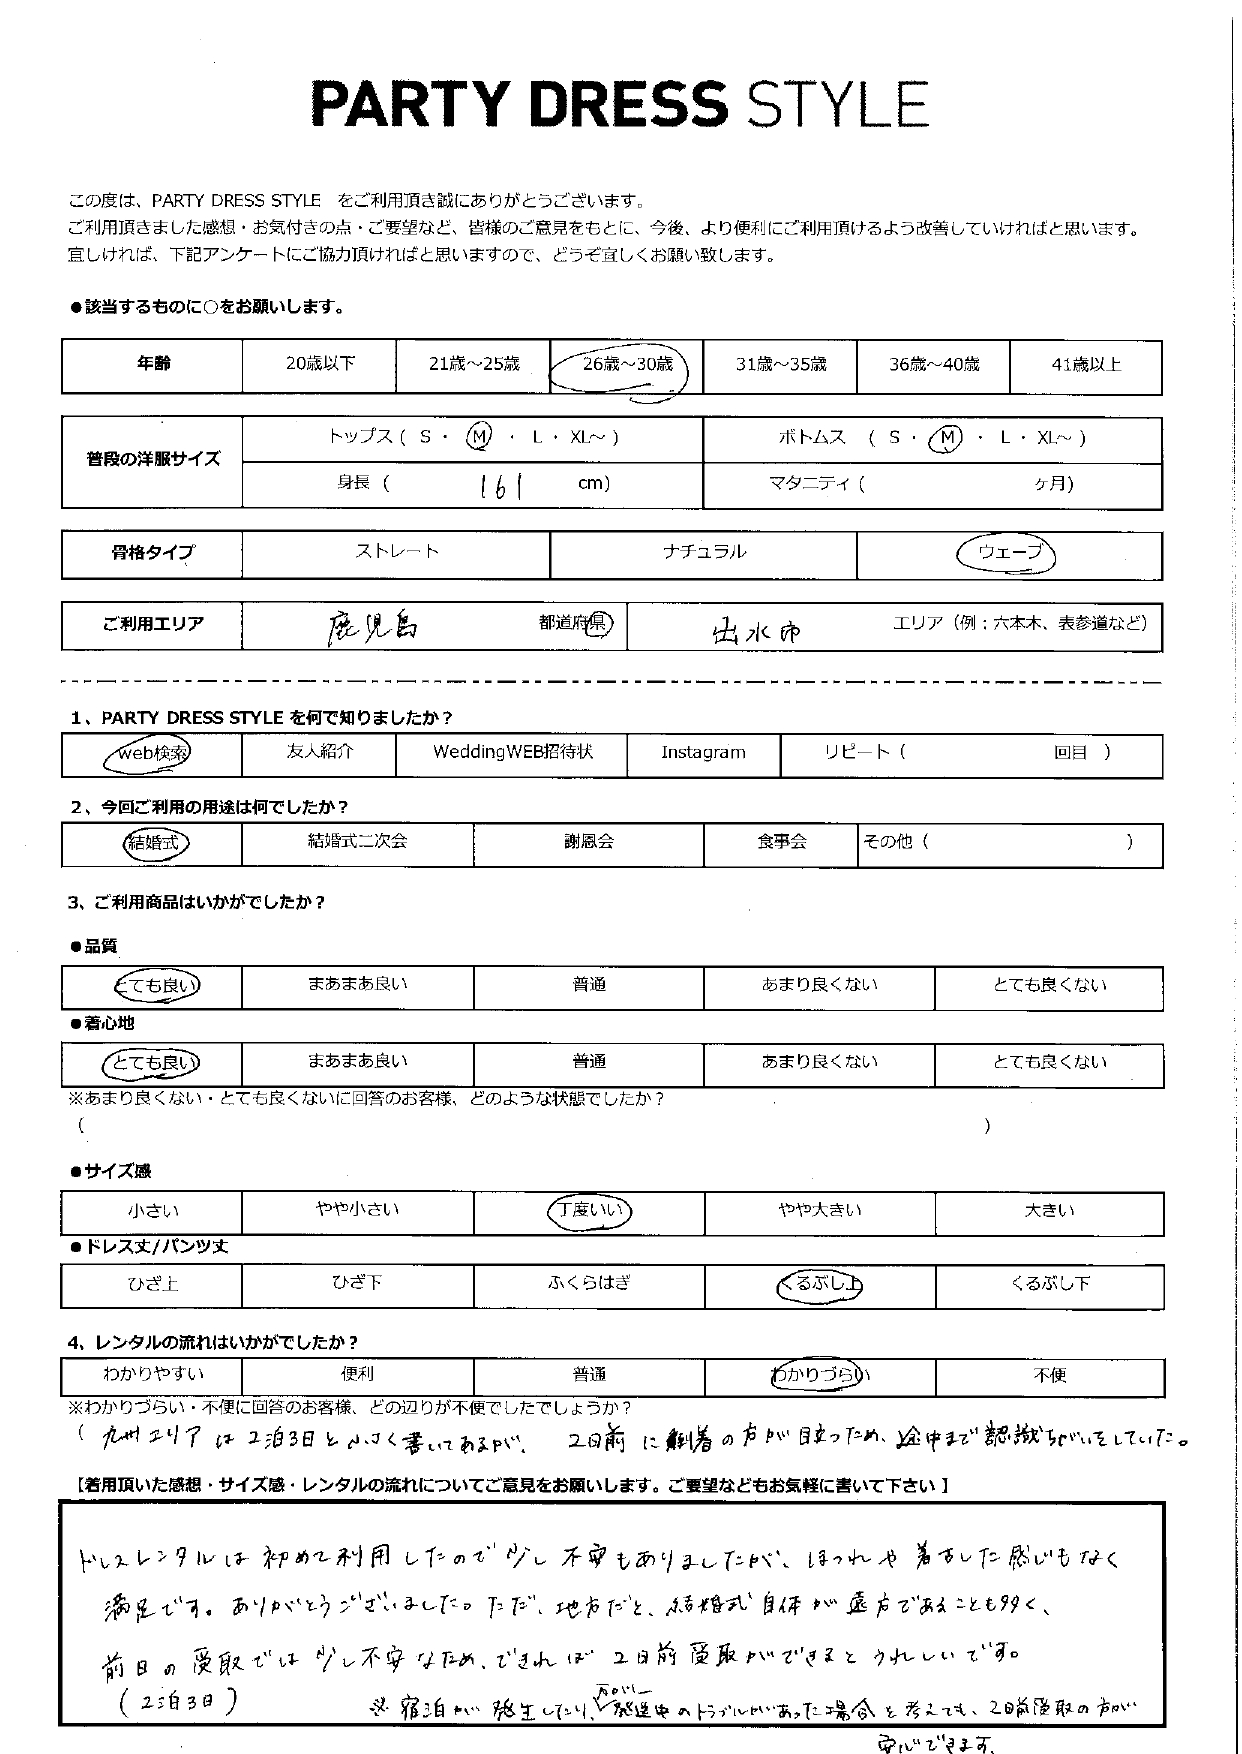 PARTY DRESS STYLE
この度は、PARTY DRESS STYLE をご利用頂き誠にありがとうございます。
ご利用頂きました感想・お気付きの点・ご要望など、皆様のご意見をもとに、今後、より便利にご利用頂けるよう改善していければと思います。
宜しければ、下記アンケートにご協力頂ければと思いますので、どうぞ宜しくお願い致します。
●該当するものに○をお願いします。
年齢 20歳以下 21歳～25歳 26歳～30歳 31歳～35歳 36歳～40歳 41歳以上
普段の洋服サイズ トップス ( S ・ M ・ L ・ XL～ ) ボトムス ( S ・ M ・ L ・ XL～ )
身長 ( 161 cm) マタニティ ( ヶ月)
骨格タイプ ストレート ナチュラル ウェーブ
ご利用エリア 鹿児島 都道府県 出水市 エリア（例：六本木、表参道など）
1、PARTY DRESS STYLE を何で知りましたか？
web検索 友人紹介 WeddingWEB招待状 Instagram リピート ( 回目 )
2、今回ご利用の用途は何でしたか？
結婚式 結婚式二次会 謝恩会 食事会 その他 ( )
3、ご利用商品はいかがでしたか？
●品質
とても良い まあまあ良い 普通 あまり良くない とても良くない
●着心地
とても良い まあまあ良い 普通 あまり良くない とても良くない
※あまり良くない・とても良くないに回答のお客様、どのような状態でしたか？
( )
●サイズ感
小さい やや小さい 丁度いい やや大きい 大きい
●ドレス丈/パンツ丈
ひざ上 ひざ下 ふくらはぎ くるぶし上 くるぶし下
4、レンタルの流れはいかがでしたか？
わかりやすい 便利 普通 わかりづらい 不便
※わかりづらい・不便に回答のお客様、どの辺りが不便でしたでしょうか？
( 九州エリアは2泊3日と小さく書いてあるが、2日前に到着の方が目立つため、途中まで認識ちがいをしていた。
【着用頂いた感想・サイズ感・レンタルの流れについてご意見をお願いします。ご要望などもお気軽に書いて下さい】
ドレスレンタルは初めて利用したので少し不安もありましたが、ほつれや着古した感じもなく
満足です。ありがとうございました。ただ、地方だと、結婚式自体が遠方であることも多く、
前日の受取では少し不安なため、できれば2日前受取ができるとうれしいです。
(2泊3日) ※宿泊が発生したり、万が一発送中のトラブルがあった場合と考えても、2日前受取の方が
安心できます。